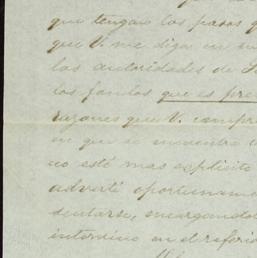 que tengan los pasos q
que V. me diga en su
las autoridades de S
los fondos que es pre
razones que V. compr
en que se encuentra
co esté mas esplicito
adverti oportuname
sentarse, encargandol
interdiio en el referi